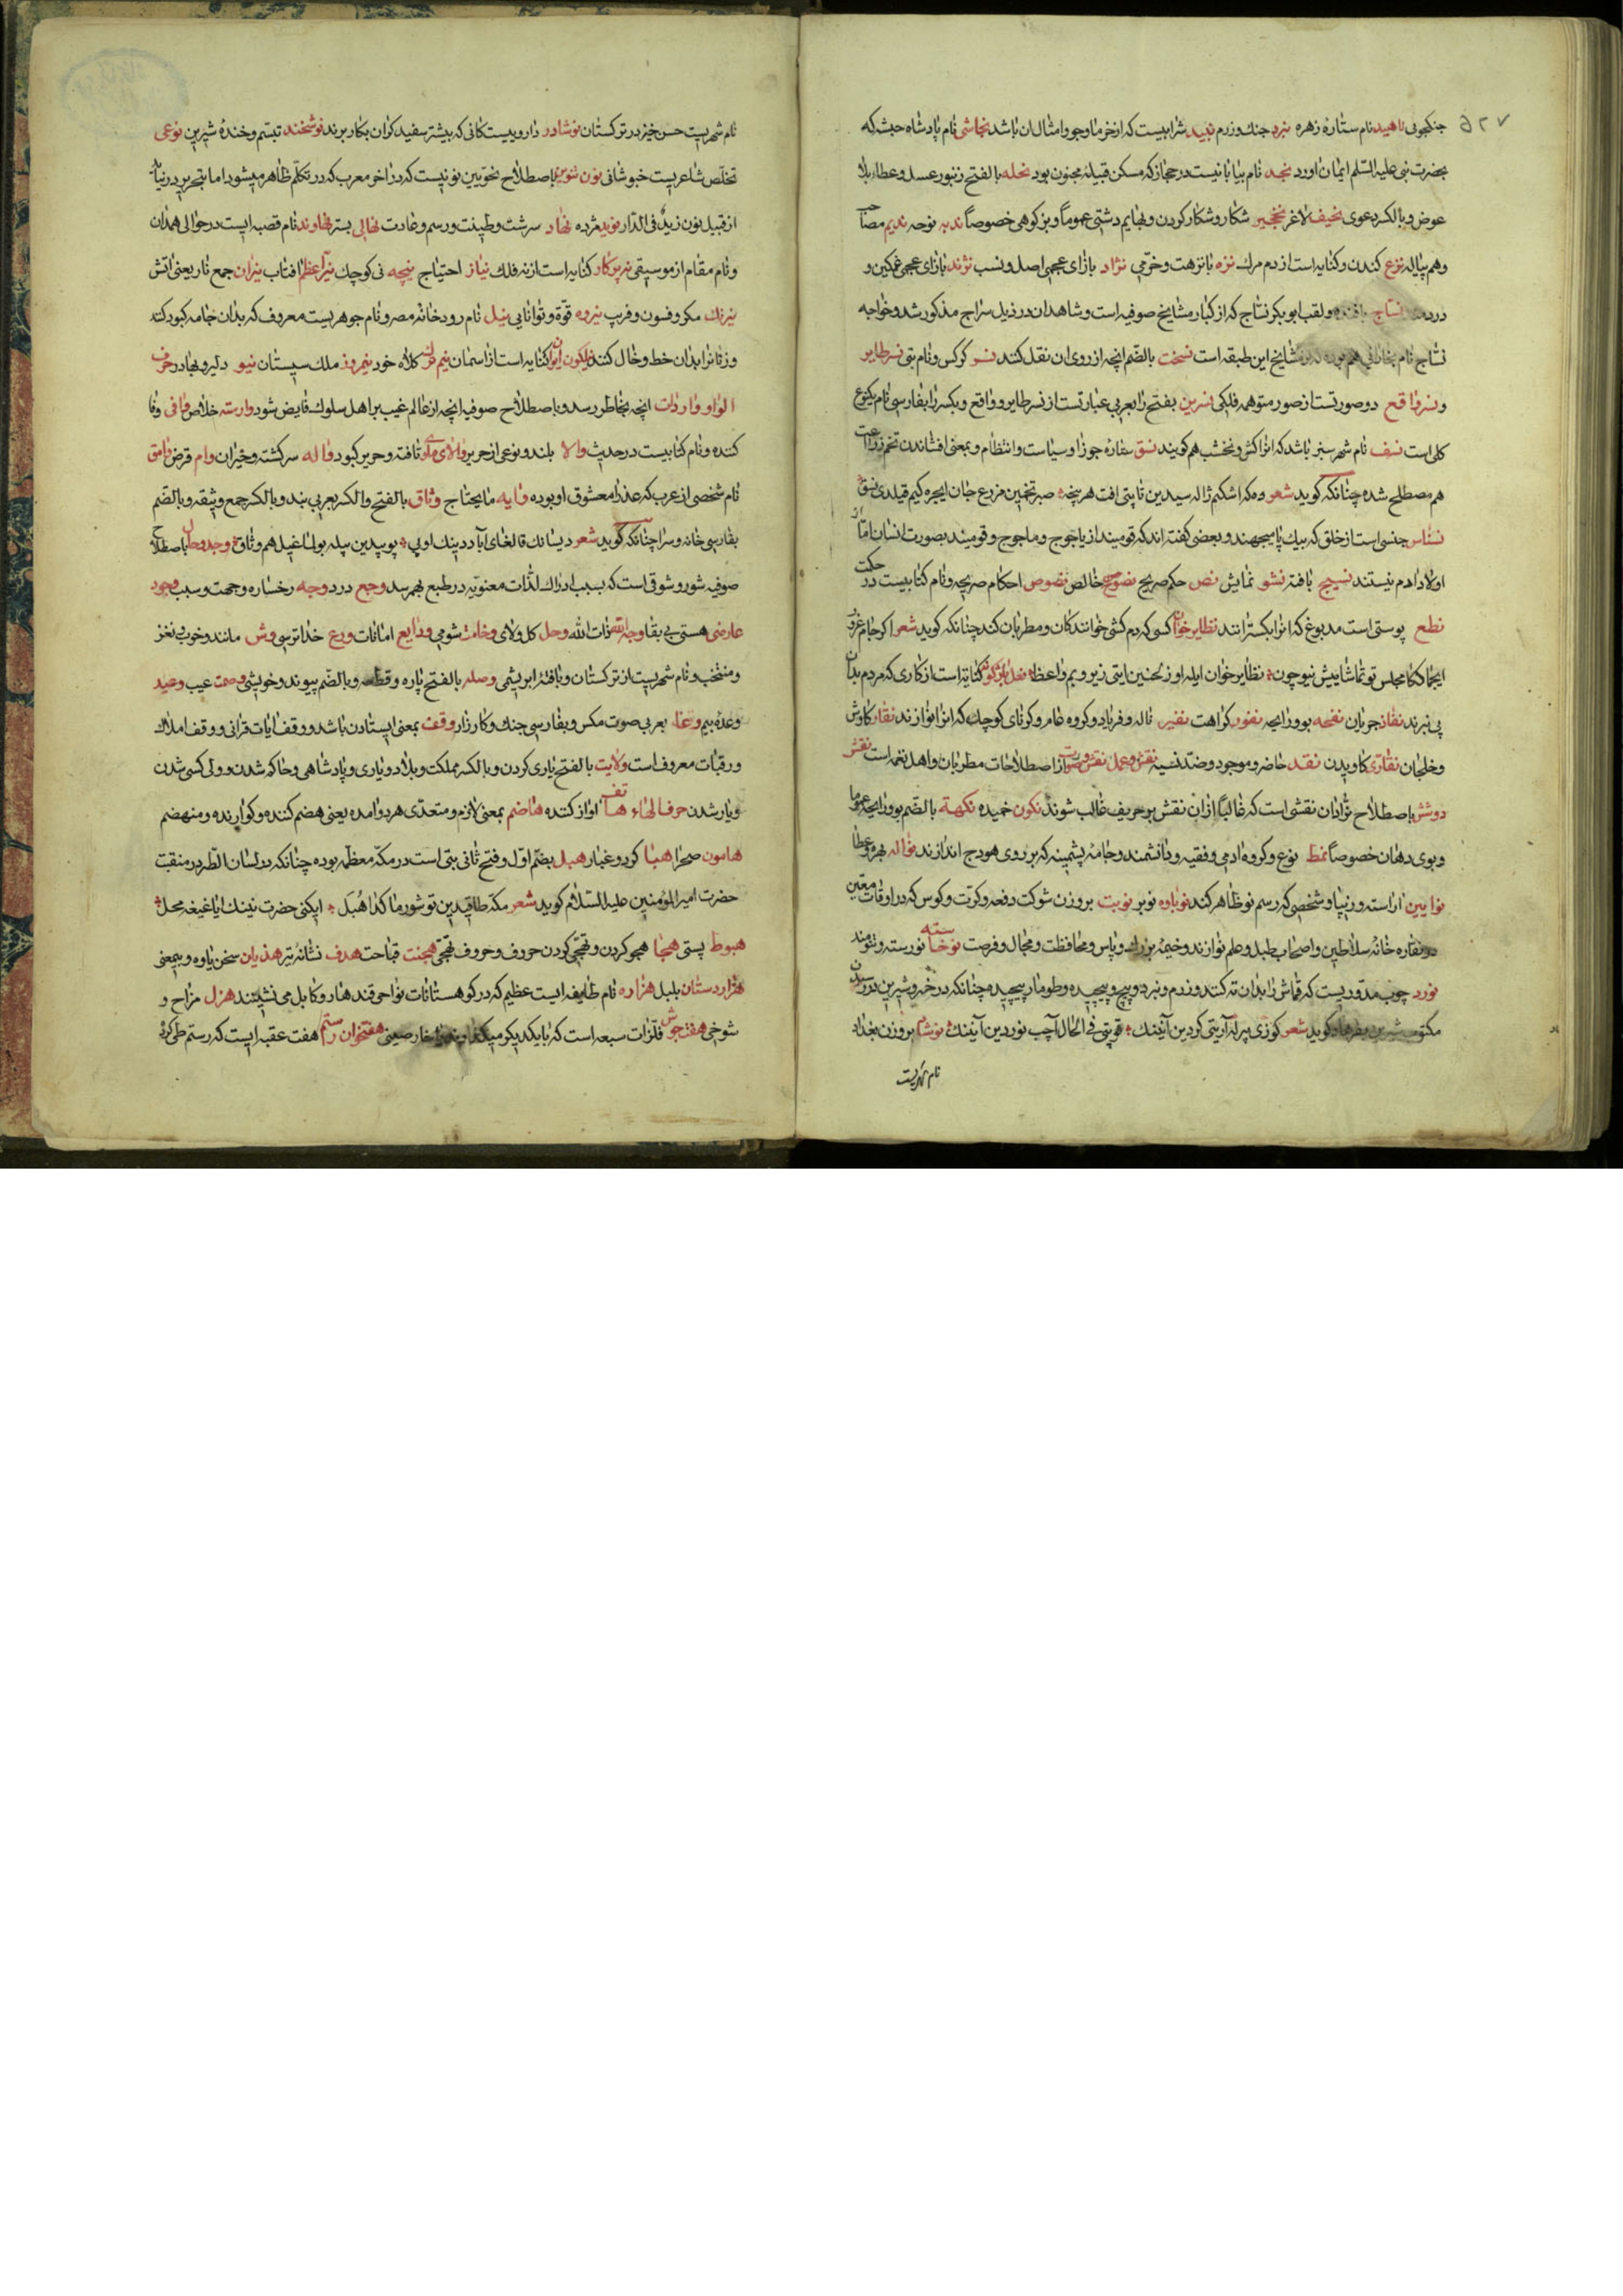 جنکجوئی ناهید نام ستارهٔ زهره نبرد جنك و رزم نبید شرابیست که از خرما و جو و امثال ان باشد نجاشی نام پادشاه حبشه که
بحضرت نبی علیه السّلم ایمان اورد نجد نام بیابانیست در حجاز که مسکن قبیلهٔ مجنون بود نحله بالفتح زنبور عسل و عطاء بلا
عوض و بالکسر دعوی نحیف لاغر نخجیر شکار و شکار کردن و بهایم دشتی عموماً و بز کوهی خصوصاً ندبه نوحه ندیم مصاحب
و هم پیاله نزع کندن و کنایه است از دم مرك نزه با نزهت و خرّمی نژاد بازای عجمی اصل و نسب نژند بازای عجمی غمکین و
نسّاج بافنده و لقب ابوبکر نسّاج که از کبار مشایخ صوفیه است و شاهدان در ذیل سراج مذکور شد و خواجه
نسّاج نام بخارائی هم بوده که از مشایخ این طبقه است نسخت بالضّم انچه از روی ان نقل کنند نسر کرکس و نام بتی نسر طایر
و نسر واقع دو صورتست از صور متوهمه فلکی نسرین بفتح را بعربی عبارتست از نسر طایر و واقع و بکسر را بفارسی نام یکنوع
کلی است نسف نام شهر سبز باشد که انرا کش و نخشب هم کویند نسق ستارهٔ جوزا و سیاست و انتظام و بمعنی افشاندن تخم زراعت
هم مصطلح شده چنانکه کوید شعر وه که اشکیم ژاله سیدین تاپتی افت هر نیچه صبر تخمین مزرع جان ایچره کیم قیلدی نسق
نسناس جنسی است از خلق که بیك پا میجهند و بعضی کفته اند که قومیند از یاجوج و ماجوج و قومیند بصورت انسان امّا از
اولاد ادم نیستند نسیج بافته نشو نمایش نص حکم صریح نصوح خالص نصوص احکام صریحه و نام کتابیست در حکمت
نطع پوستی است مدبوغ که انرا بکسترانند نظایر خوان کسی که دم کشی خوانندکان و مطربان کند چنانکه کوید شعر اکر جام غرور
ایجماككا مجلس تو تماشاییش نیو چون نظایر خوان ایله اوز لحنین ایتی زیر و بم واعظ نعل باژکونه کنایة است از کاری که مردم بدان
پی نبرند نفاذ جریان نفحه بوو رایحه نفور کراهت نفیر ناله و فریاد و کروه عام و کرنای کوچك که انرا نوازند نقار کاوش
و خلجان نقّاری کاویدن نقد حاضر و موجود و ضدّ نسیه نقش و عمل نقش و صوت از اصطلاحات مطربان و اهل نغمه است نقش
دوشش باصطلاح نرّادان نقشی است که غالباً از ان نقش بر حریف غالب شوند نکون خمیده نکهة بالضّم بوو رایحه عموما
و بوی دهان خصوصاً نمط نوع و کروه ادمی و فقیه و دانشمند و جامهٔ پشمینه که بر روی هودج اندازند نواله بهره و عطا
نوایین اراسته و زیبا و شخصی که رسم نو ظاهر کند نوباوه نوبر نوبت بر وزن شوکت دفعه و کرّت و کوس که در اوقات معیّن
در نقاره خانهٔ سلاطین و اصحاب طبل و علم نوازند و خیمهٔ بزرك و پاس و محافظت و مجال و فرصت نوخاسته نورسته و تنومند
نورد چوب مدوّریست که قماش را بدان ته کنند و رزم و نبرد و پیچ و پیچیده و طومار پیچیده چنانکه در رسیدن
مکتوب شیرین بفرهاد کوید شعر کوزی پر لهٔ آریتی کردین آنینك قویتی فی الحال آچب نوردین آنینك نوشاد بر وزن بغداد
نام شهریست
نام شهریست حسن خیز در ترکستان نوشادر داروییست کانی که بیشتر سفیدکران بکار برند نوشخند تبسّم و خندهٔ شیرین نوعی
تخلّص شاعریست خبوشانی نون تنوین باصطلاح نحویین نونیست که در اخر معرب که در تکلّم ظاهر میشود اما بتحریر در نیاید
از قبیل نون زیدٌ فی الدّار نوید مژده نهاد سرشت و طینت و رسم و عادت نهالی بستر نهاوند نام قصبه ایست در حوالی همدان
و نام مقام از موسیقی نه پرکار کنایه است از نه فلك نیاز احتیاج نیچه نی کوچك نیّر اعظم افتاب نیران جمع نار یعنی اتش
نیرنك مکر و فسون و فریب نیروه قوّة و توانایی نیل نام رودخانهٔ مصر و نام جوهریست معروف که بدان جامه کبود کنند
و زنانرا بدان خط و خال کنند نیلکون ایوان کنایه است از اسمان نیم ترك کلاه خود نیمروز ملك سیستان نیو دلیر و بهادر حرف
الواو واردات انچه بخاطر رسد و باصطلاح صوفیه انچه از عالم غیب بر اهل سلوك فایض شود وارسته خلاص وافی وفا
کننده و نام کتابیست در حدیث والا بلند و نوعی از حریر والای مکّه بافته و حریر کبود واله سر کشته و حیران وام قرض وامق
نام شخصی از عرب که عذرا معشوق او بوده وایه مایحتاج وثاق بالفتح و الکسر بعربی بند و بالکسر جمع وثیقه و بالضّم
بفارسی خانه و سرا چنانکه کوید شعر دیسانك قالغای آباد دینك اویی پوییدین سیله بولماغیل هم وثاق وجد و حال باصطلاح
صوفیه شور و شوقی است که بسبب ادراك لذّات معنویّه در طبع بهم رسد وجع درد وجه رخساره و جهت و سبب وجود
عارضی هستی بی بقا وجه الله ذات الله وحل کل و لای وخامت شومی ودایع امانات ورع خدا ترسی وش مانند و خوب نغز
و منتخب و نام شهریست از ترکستان و بافتهٔ ابریشمی وصله بالفتح پاره و قطعه و بالضّم پیوند و خویشی وصمت عیب وعید
وعدهٔ بیم وغا بعربی صوت مکس و بفارسی جنك و کارزار وقف بمعنی ایستادن باشد و وقف ایات قرانی و وقف املاك
و رقبات معروف است ولایت بالفتح یاری کردن و بالکسر مملکت و بلاد و یاری و پادشاهی و حاکم شدن و ولی کسی شدن
و یار شدن حرف الهاء هاتف اواز کننده هاضم بمعنی لازم و متعدّی هر دو امده یعنی هضم کننده و کوارنده و منهضم
هامون صحرا هبا کرد و غبار هبل بضمّ اوّل و فتح ثانی بتی است در مکّه معظّمه بوده چنانکه در لسان الطّیر در منقبت
حضرت امیر المؤمنین علیه السّلام کوید شعر مکّه طاقیدین توشورماككا هُبَل ایکنی حضرت نینك ایاغیغه محل
هبوط پستی هجا هجو کردن و تهجّی کردن حروف و حروف تهجّی هجنت قباحت هدف نشانهٔ تیر هذیان سخن یاوه و بیمعنی
هزار دستان بلبل هزاره نام طایفه ایست عظیم که در کوهستانات نواحی قندهار و کابل می نشینند هزل مزاح و
شوخی هفت جوش فلزات سبعه است که با یکدیکر میکدازند هفتخوان رستم هفت عقبه ایست که رستم طی کرده